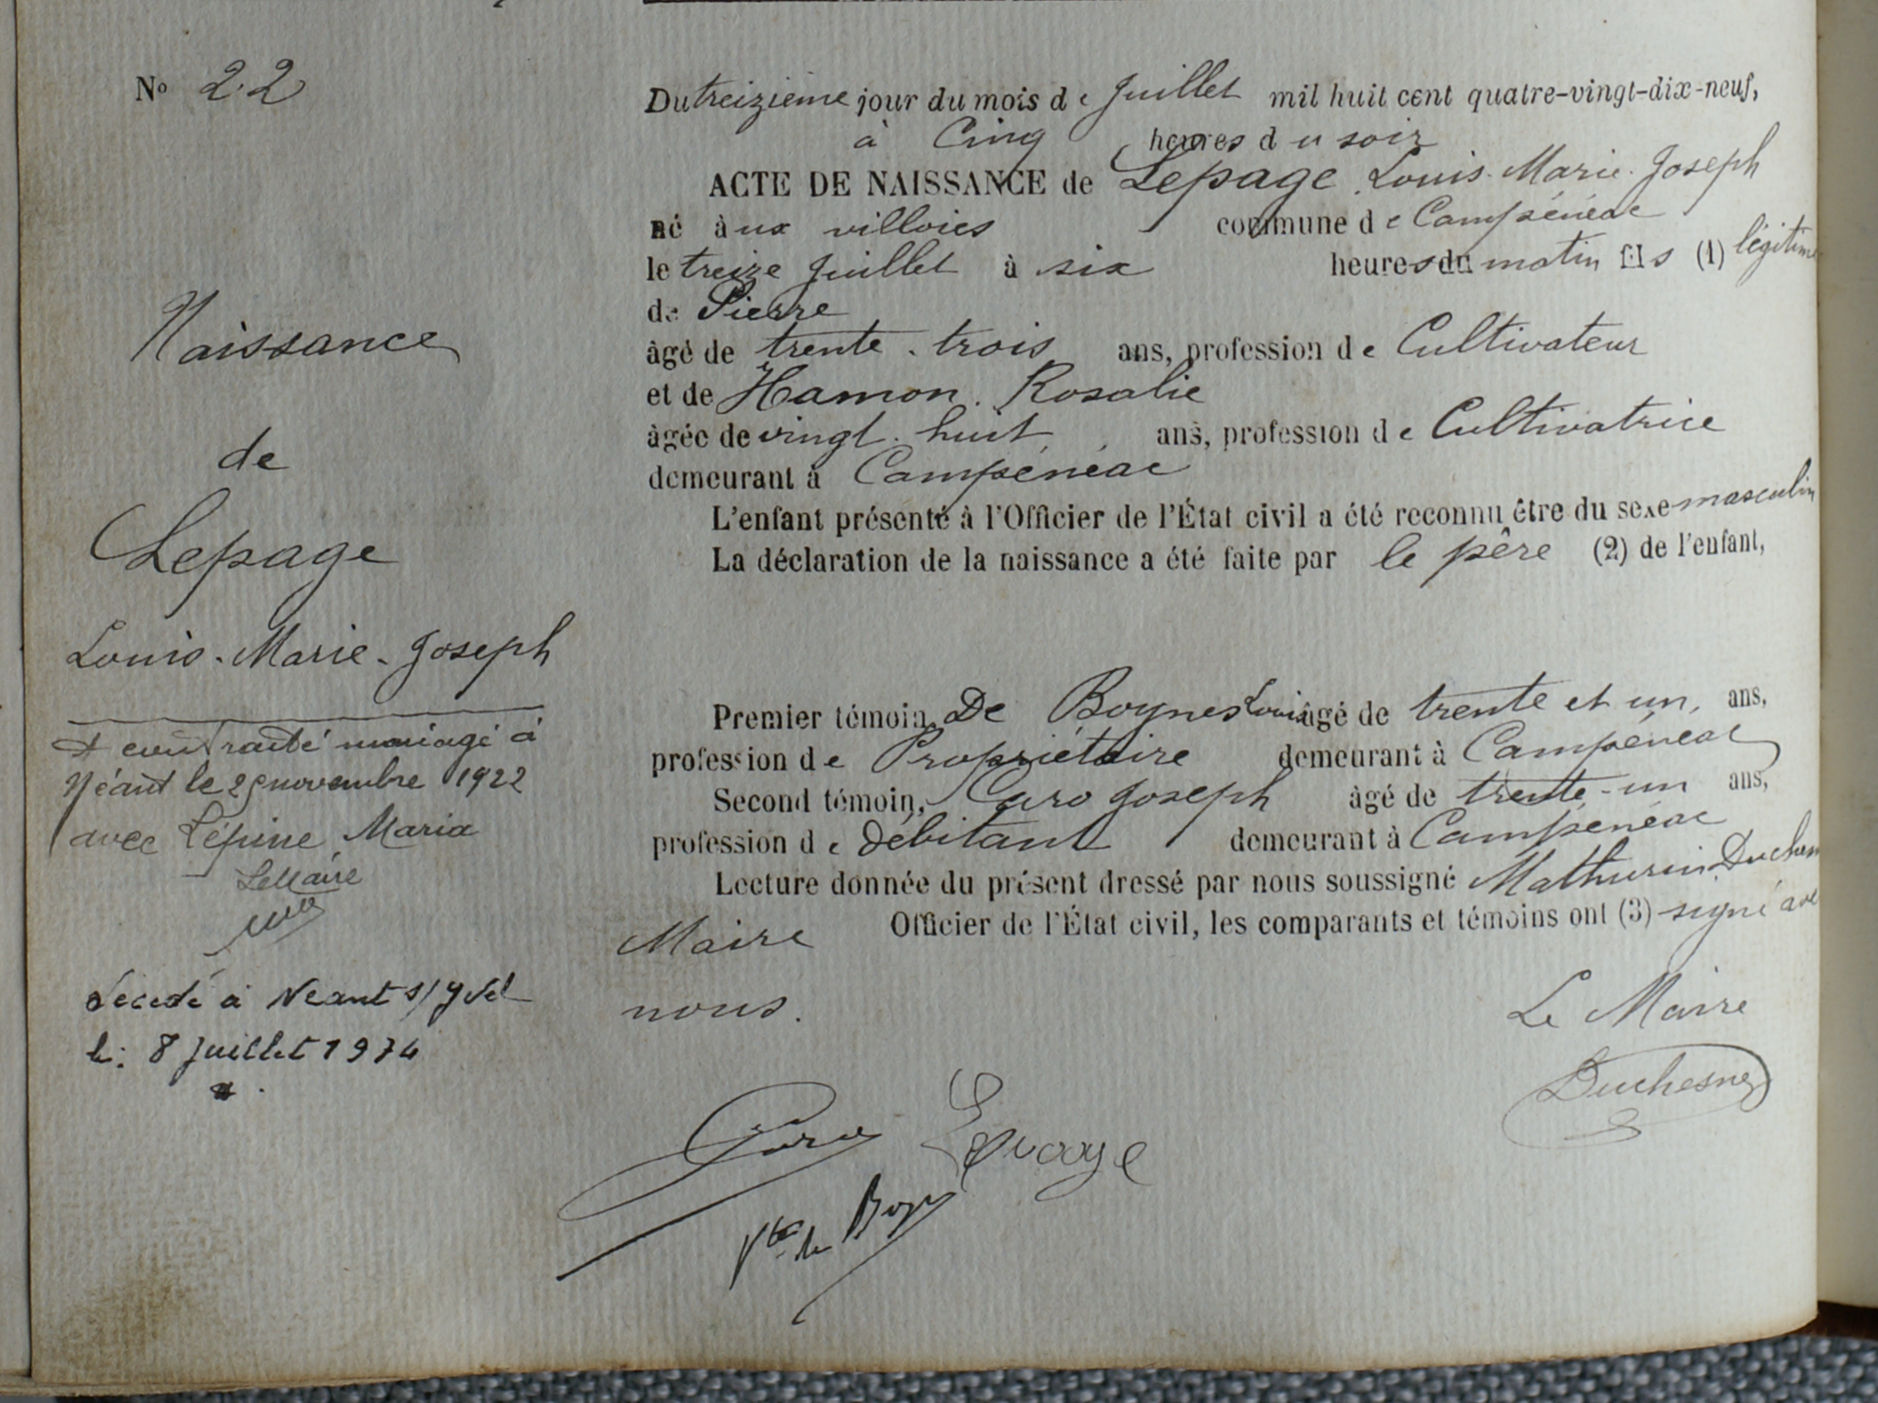 N° 22
Naissance
de
Lepage
Louis-Marie-Joseph
A contracté mariage à
Néant le novembre 1922
avec Lépine Maria
Le Maire
décédé à Néant s/Yvel
le: 8 Juillet 1974
Du treizième jour du mois de Juillet mil huit cent quatre-vingt-dix-neuf,
à Cinq heures du soir
ACTE DE NAISSANCE de Lepage Louis-Marie-Joseph
né à ux villoies commune de Campénéac
le treize Juillet à six heures du matin fils (1) légitime
de Pierre
âgé de trente-trois ans, profession de Cultivateur
et de Hamon Rosalie
âgée de vingt-huit ans, profession de Cultivatrice
demeurant à Campénéac
L'enfant présenté à l'Officier de l'État civil a été reconnu être du sexe masculin
La déclaration de la naissance a été faite par le père (2) de l'enfant,
Premier témoin, De Boynes Louis âgé de trente et un, ans,
profession de Propriétaire demeurant à Campénéac
Second témoin, Caro Joseph âgé de trente-un ans,
profession de débitant demeurant à Campénéac
Lecture donnée du présent dressé par nous soussigné Mathurin Duchesn
Maire Officier de l'État civil, les comparants et témoins ont (3) signé avec
nous.
Le Maire
Duchesne
Caro Lepage
Vte de Boynes